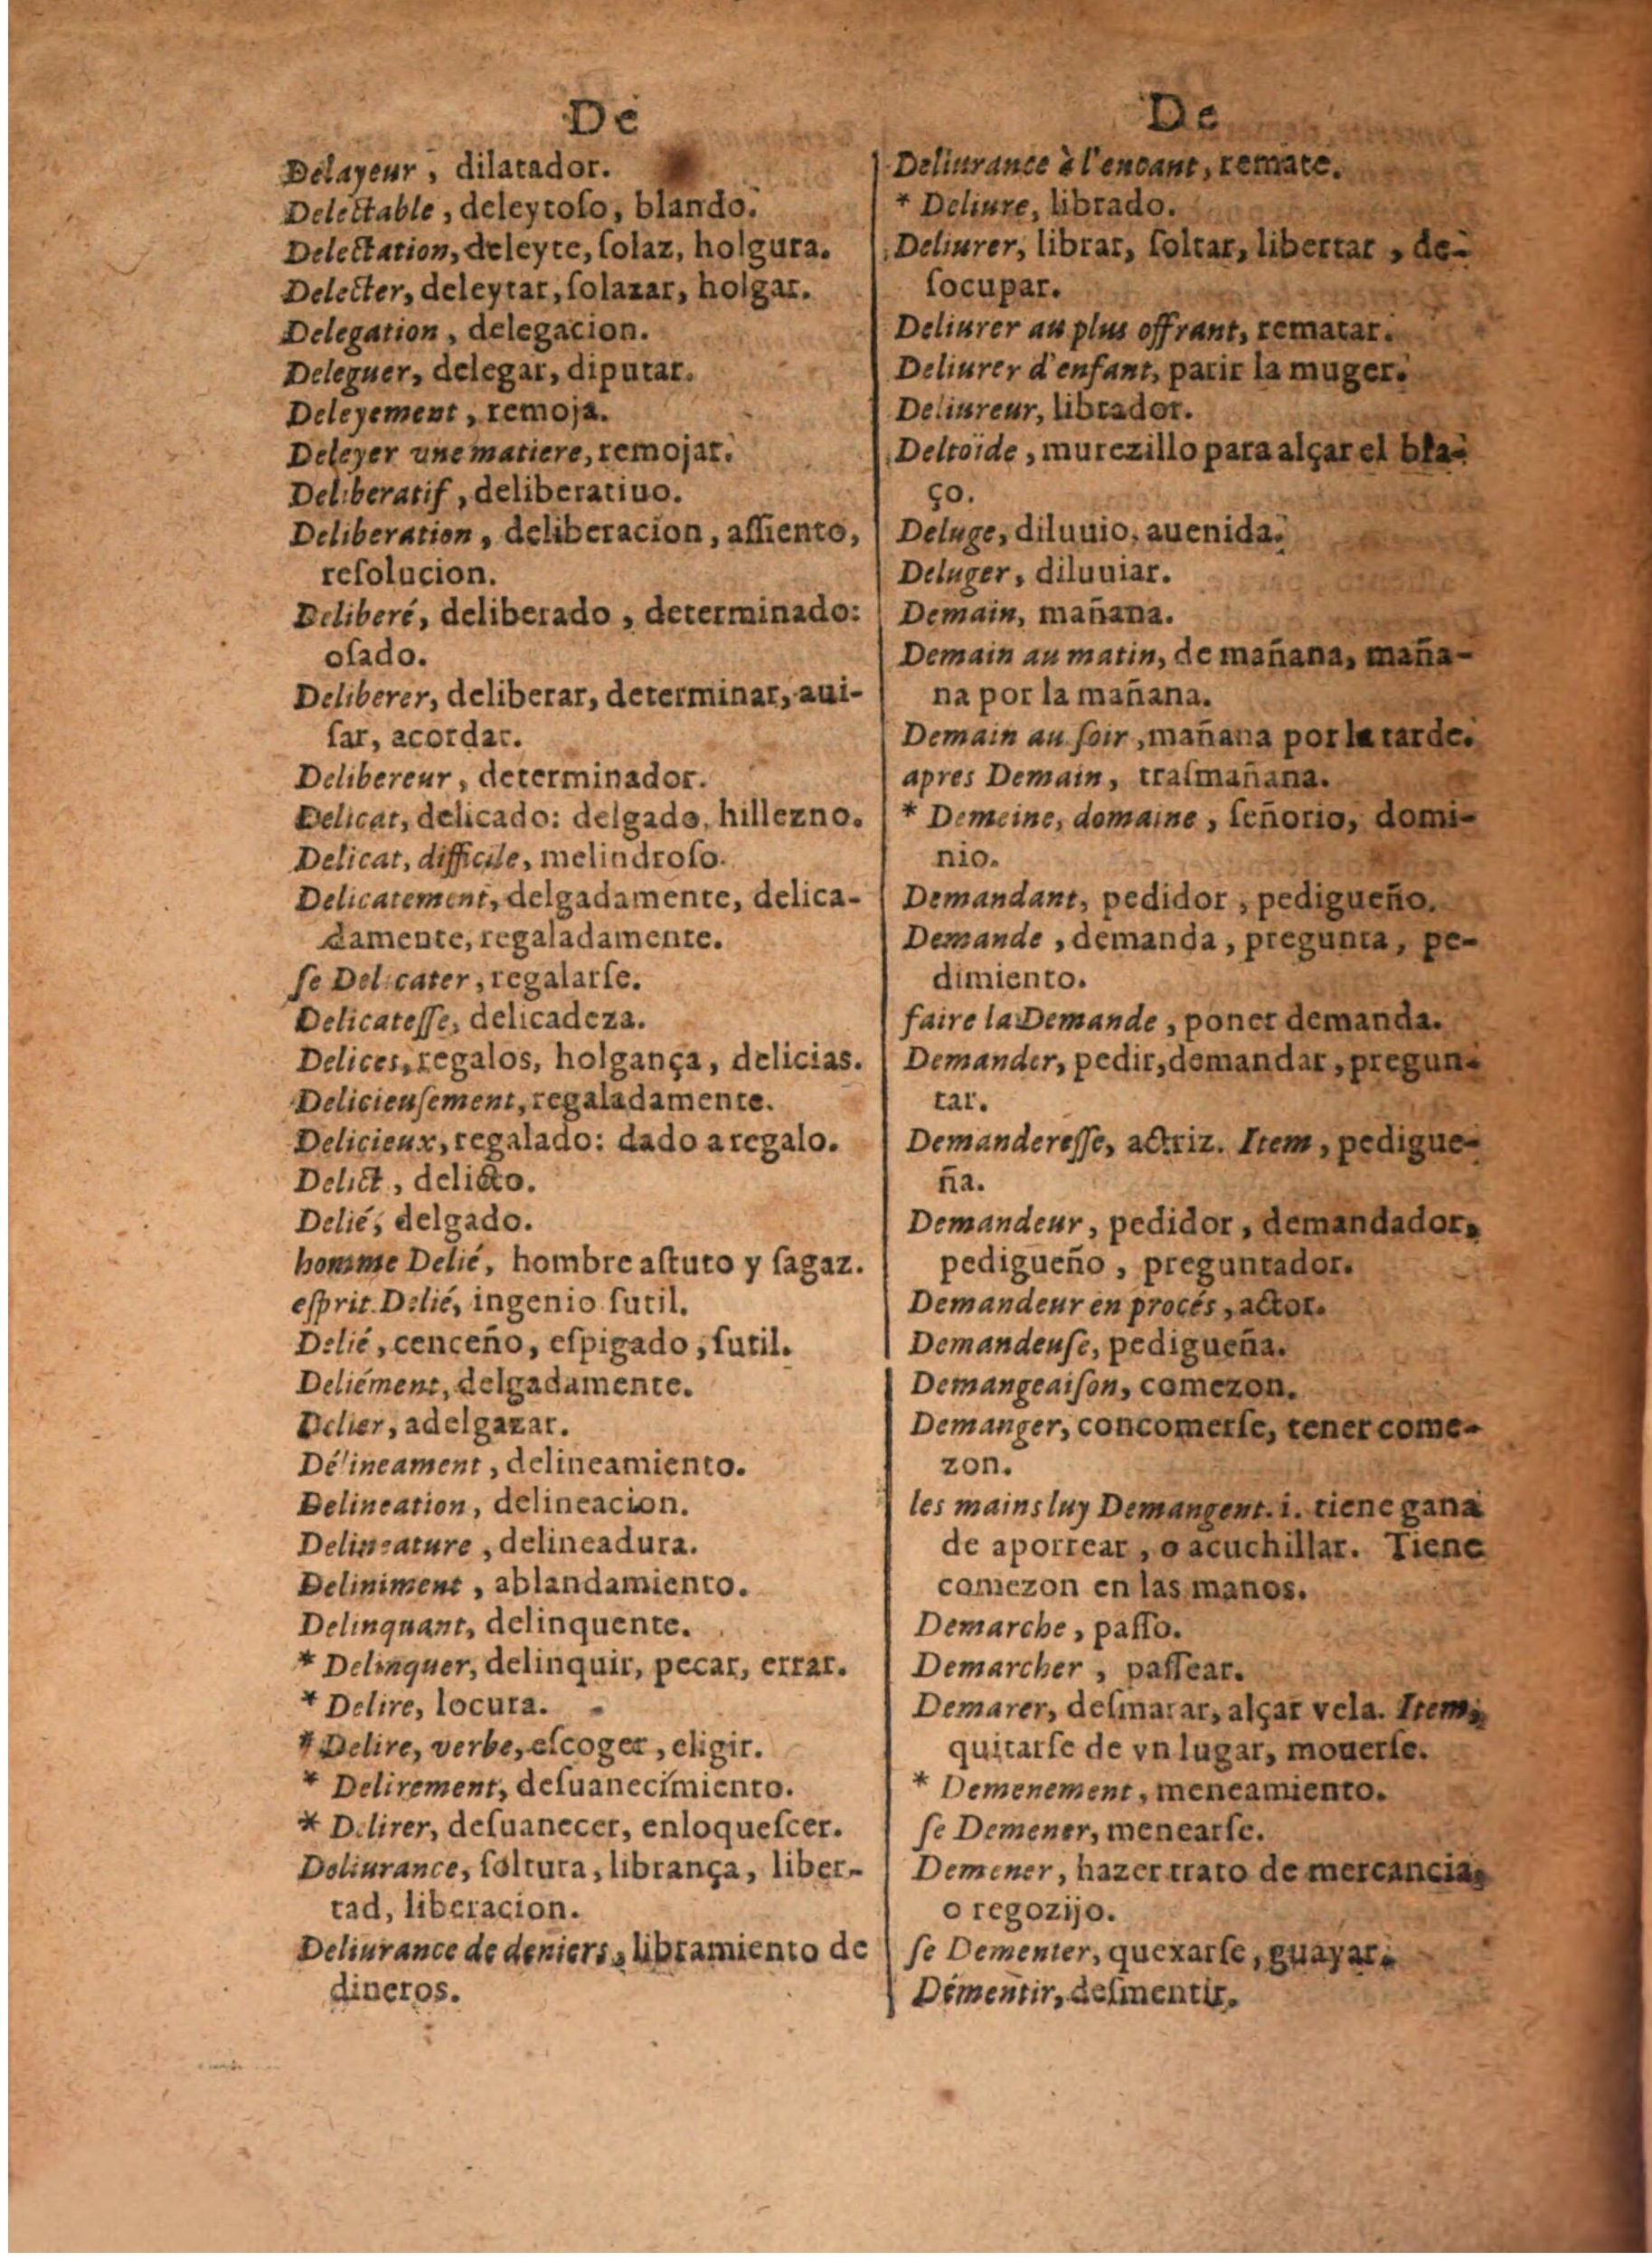 De
Délayeur, dilatador.
Delectable, deleytoſo, blando.
Delectation, deleyte, ſolaz, holgura.
Delecter, deleytar, ſolazar, holgar.
Delegation, delegacion.
Deleguer, delegar, diputar.
Deleyement, remoja.
Deleyer une matiere, remojar.
Deliberatif, deliberatiuo.
Deliberation, deliberacion, aſſiento,
reſolucion.
Deliberé, deliberado, determinado:
oſado.
Deliberer, deliberar, determinar, aui-
ſar, acordar.
Delibereur, determinador.
Delicat, delicado: delgado, hillezno.
Delicat, difficile, melindroſo.
Delicatement, delgadamente, delica-
damente, regaladamente.
ſe Delicater, regalarſe.
Delicateſſe, delicadeza.
Delices, regalos, holgança, delicias.
Delicieuſement, regaladamente.
Delicieux, regalado: dado a regalo.
Delict, delicto.
Delié, delgado.
homme Delié, hombre aſtuto y ſagaz.
eſprit Delié, ingenio ſutil.
Delié, cenceño, eſpigado, ſutil.
Deliément, delgadamente.
Delier, adelgazar.
Délineament, delineamiento.
Delineation, delineacion.
Delineature, delineadura.
Deliniment, ablandamiento.
Delinquant, delinquente.
* Delinquer, delinquir, pecar, errar.
* Delire, locura.
* Delire, verbe, eſcoger, eligir.
* Delirement, deſuanecimiento.
* Delirer, deſuanecer, enloqueſcer.
Deliurance, ſoltura, librança, liber-
tad, liberacion.
Deliurance de deniers, libramiento de
dineros.
De
Deliurance à l'encant, remate.
* Deliure, librado.
Deliurer, librar, ſoltar, libertar, de-
ſocupar.
Deliurer au plus offrant, rematar.
Deliurer d'enfant, parir la muger.
Deliureur, librador.
Deltoïde, murezillo para alçar el bra-
ço.
Deluge, diluuio, auenida.
Deluger, diluuiar.
Demain, mañana.
Demain au matin, de mañana, maña-
na por la mañana.
Demain au ſoir, mañana por la tarde.
apres Demain, traſmañana.
* Demeine, domaine, ſeñorio, domi-
nio.
Demandant, pedidor, pedigueño.
Demande, demanda, pregunta, pe-
dimiento.
faire la Demande, poner demanda.
Demander, pedir, demandar, pregun-
tar.
Demandereſſe, actriz. Item, pedigue-
ña.
Demandeur, pedidor, demandador,
pedigueño, preguntador.
Demandeur en procés, actor.
Demandeuſe, pedigueña.
Demangeaiſon, comezon.
Demanger, concomerſe, tener come-
zon.
les mains luy Demangent. i. tiene gana
de aporrear, o acuchillar. Tiene
comezon en las manos.
Demarche, paſſo.
Demarcher, paſſear.
Demarer, deſmarar, alçar vela. Item,
quitarſe de vn lugar, mouerſe.
* Demenement, meneamiento.
ſe Demener, menearſe.
Demener, hazer trato de mercancia,
o regozijo.
ſe Dementer, quexarſe, guayar.
Démentir, deſmentir.